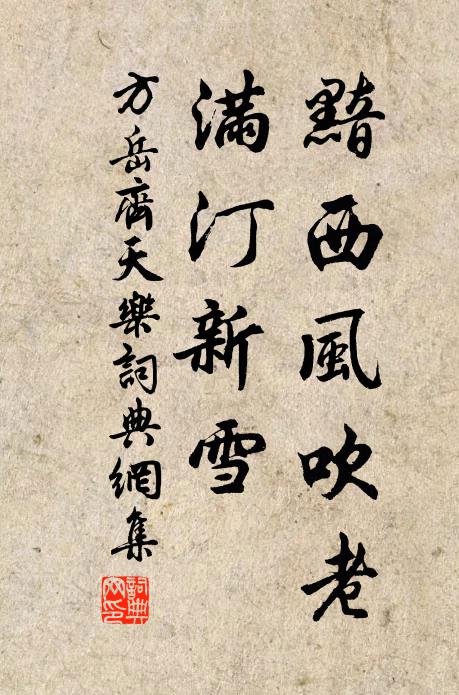 黯西風吹老
滿汀新雪
方岳齊天樂詞典網集
詞典
网印